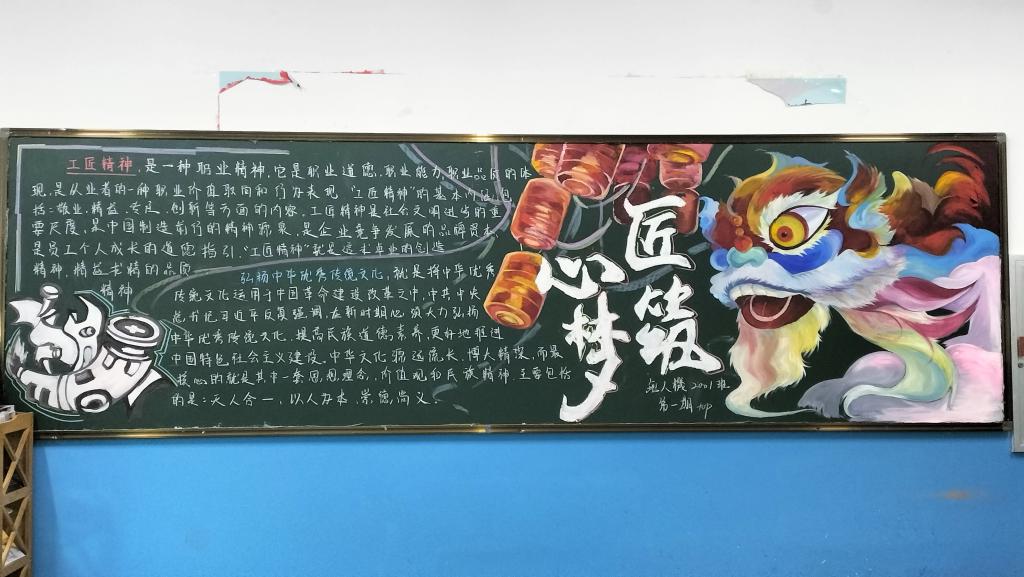 工匠精神,是一种职业精神,它是职业道德,职业能力职业品质的体
现,是从业者的一种职业价值取向和行为表现"工匠精神"的基本内涵包
括:敬业、精益、专注、创新等方面的内容。工匠精神是社会文明进步的重
要尺度、是中国制造前行的精神源泉、是企业竞争发展的品牌资本
是员工个人成长的道德指引."工匠精神"就是追求卓业的创造
精神,精益求精的品质
精神
弘扬中华优秀传统文化,就是将中华优秀
传统文化运用于中国革命建设改革之中,中共中央
总书记习近平反复强调,在新时期必须大力弘扬
中华优秀传统文化、提高民族道德素养,更好地推进
中国特色社会主义建设,中华文化源远流长、博大精深、而最
核心的就是其中一套思想理念、价值观和民族精神,主要包括
的是:天人合一、以人为本、崇德尚义.
匠心
筑梦
无人機2001班
第一期 top